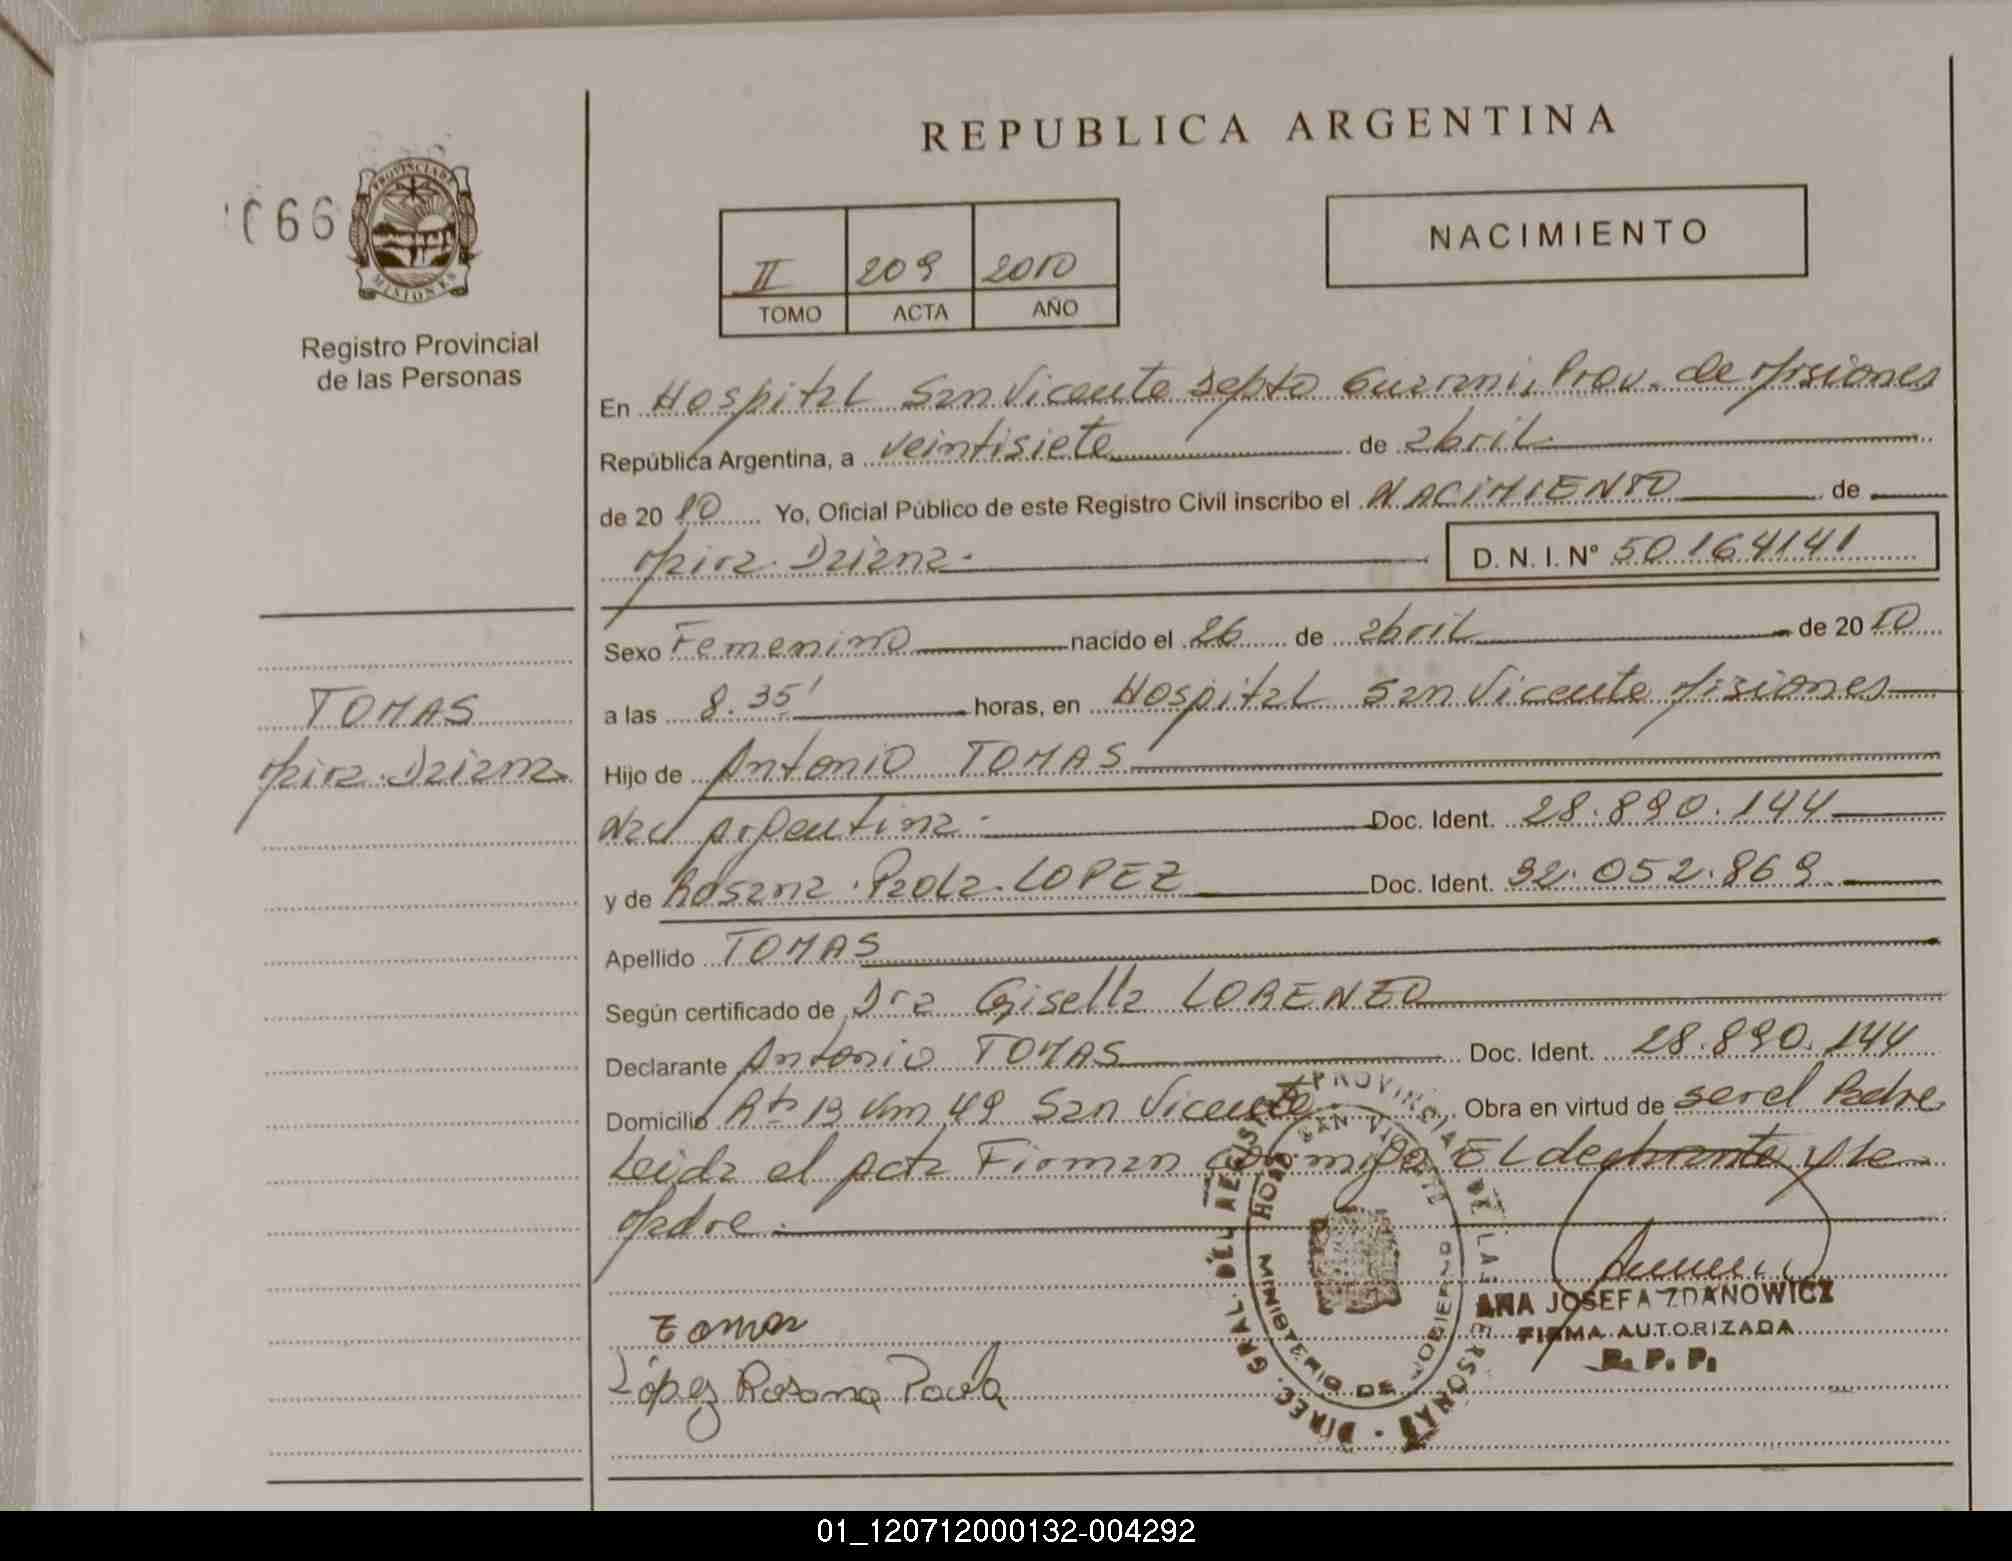 REPUBLICA ARGENTINA
66
PROVINCIA DE
MISIONES
Registro Provincial
de las Personas
NACIMIENTO
II 209 2010
TOMO ACTA AÑO
En Hospital San Vicente Depto Guarani, Prov. de Misiones
República Argentina, a veintisiete de abril
de 2010 Yo, Oficial Público de este Registro Civil inscribo el NACIMIENTO de
Maira Daiana. D. N. I. N° 50164141
Sexo Femenino nacido el 26 de abril de 2010
a las 8.35' horas, en Hospital San Vicente Misiones
TOMAS
Maira Daiana
Hijo de Antonio TOMAS
Nac Argentina. Doc. Ident. 28.890.144
y de Rosana Paola LOPEZ Doc. Ident. 32.052.869
Apellido TOMAS
Según certificado de Dra Gisella LORENZO
Declarante Antonio TOMAS Doc. Ident. 28.890.144
Domicilio Rta 13 Km 49 San Vicente Obra en virtud de ser el Padre
Leida el Acta Firman conmigo El declarante y la
Madre.
PROVINCIA DE
DIREC. GRAL. DEL REGISTRO DE LAS PERSONAS
HOSP SAN VICENTE
MINISTERIO DE GOBIERNO
ANA JOSEFA ZDANOWICZ
FIRMA AUTORIZADA
R. P. P.
Tomas
López Rosana Paola
01_120712000132-004292